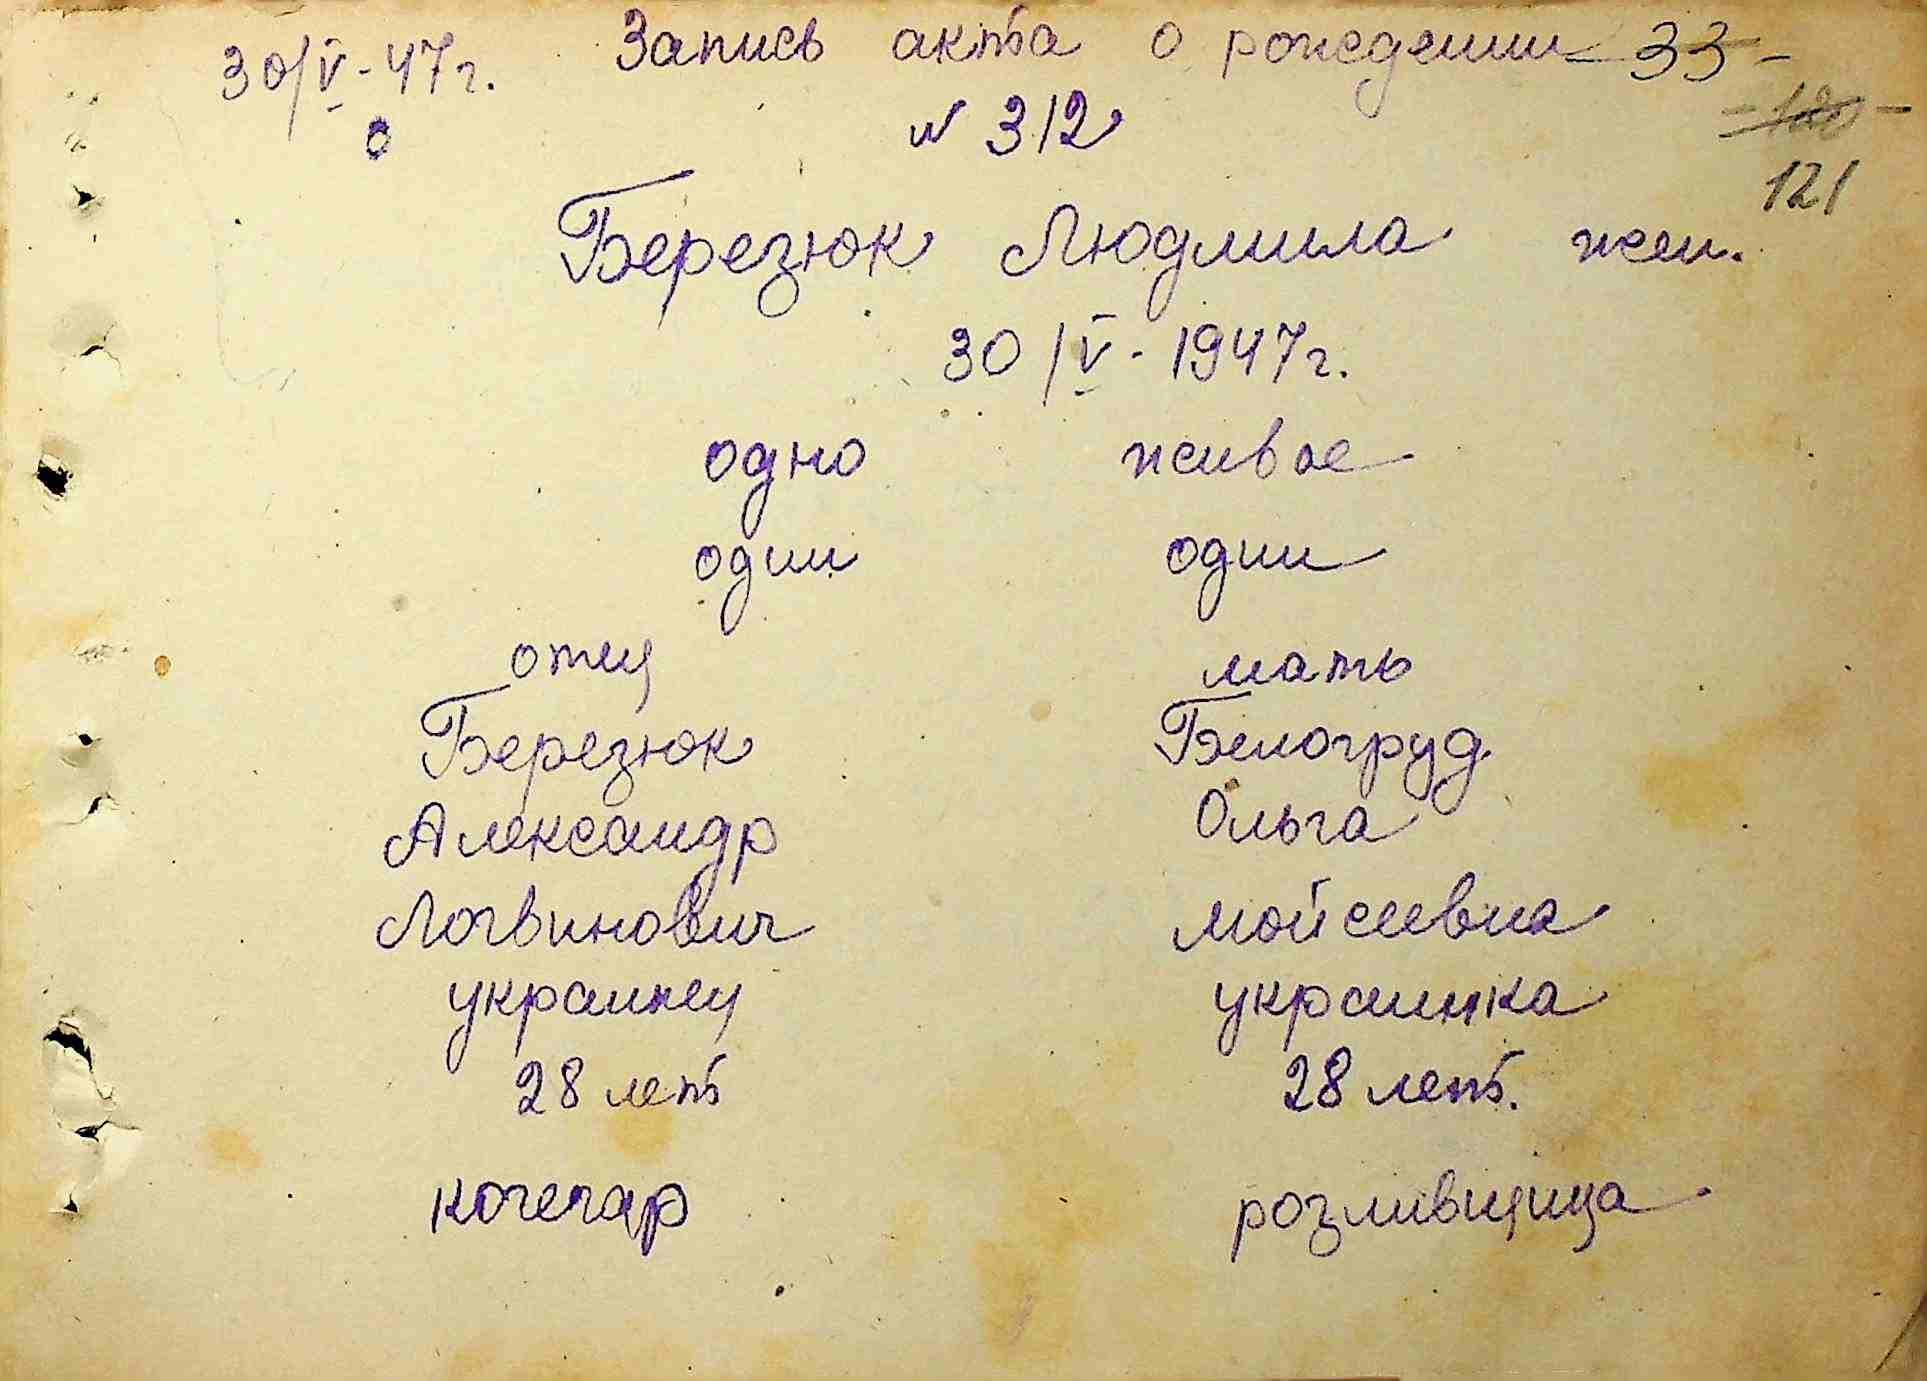 30/V-47г. Запись акта о рождении -33-
о N 312 -120-
121
Березюк Людмила жен.
30/V-1947г.
одно живое
один один
отец мать
Березюк Белогруд
Александр Ольга
Логвинович Мойсеевна
украинец украинка
28 лет 28 лет.
кочегар розливщица